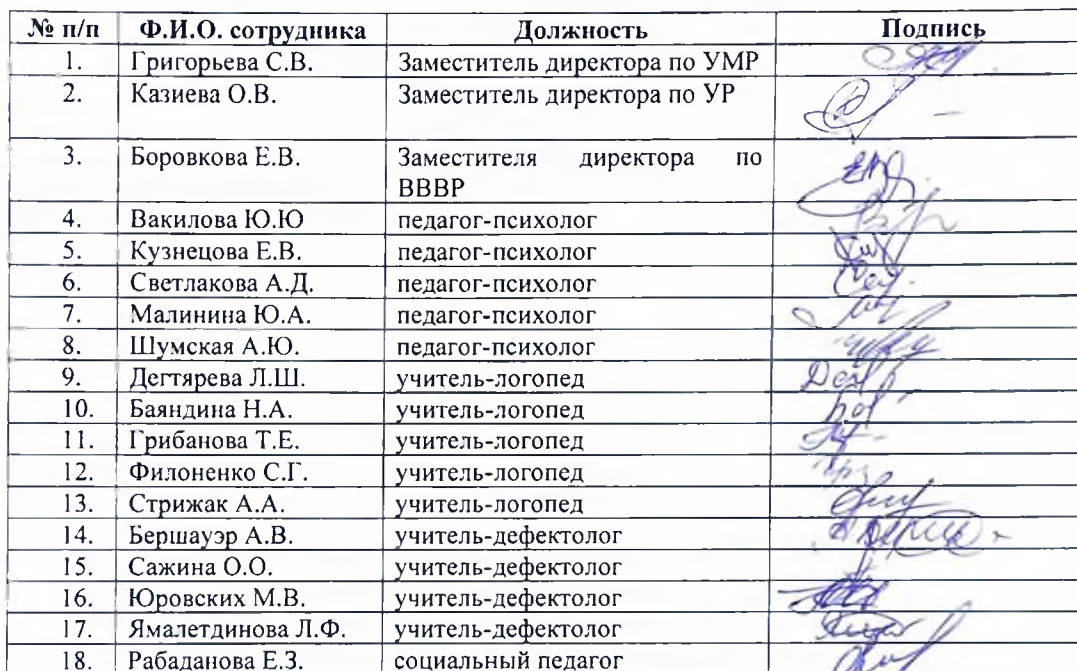 № п/п Ф.И.О. сотрудника Должность Подпись
1. Григорьева С.В. Заместитель директора по УМР
2. Казиева О.В. Заместитель директора по УР
3. Боровкова Е.В. Заместителя директора по
ВВВР
4. Вакилова Ю.Ю педагог-психолог
5. Кузнецова Е.В. педагог-психолог
6. Светлакова А.Д. педагог-психолог
7. Малинина Ю.А. педагог-психолог
8. Шумская А.Ю. педагог-психолог
9. Дегтярева Л.Ш. учитель-логопед
10. Баяндина Н.А. учитель-логопед
11. Грибанова Т.Е. учитель-логопед
12. Филоненко С.Г. учитель-логопед
13. Стрижак А.А. учитель-логопед
14. Бершауэр А.В. учитель-дефектолог
15. Сажина О.О. учитель-дефектолог
16. Юровских М.В. учитель-дефектолог
17. Ямалетдинова Л.Ф. учитель-дефектолог
18. Рабаданова Е.З. социальный педагог